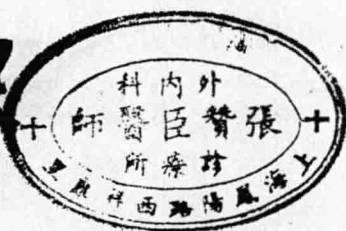 外内科
張贊臣醫師
診療所
上海鳳陽路西祥康里